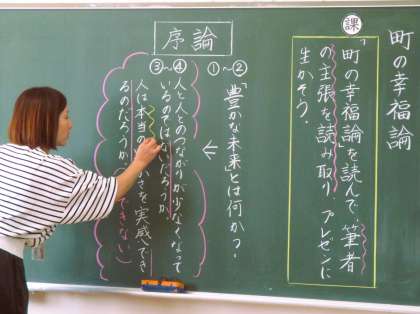 町の幸福論
課
「町の幸福論」を読んで、筆者
の主張を読み取り、プレゼンに
生かそう。
序論
①〜②
「豊かな未来とは何か?
←
③〜④
人と人とのつながりが少なくなって
いるのではないだろうか
人は本当の かさを実感でき
るのだろうか。(できない)